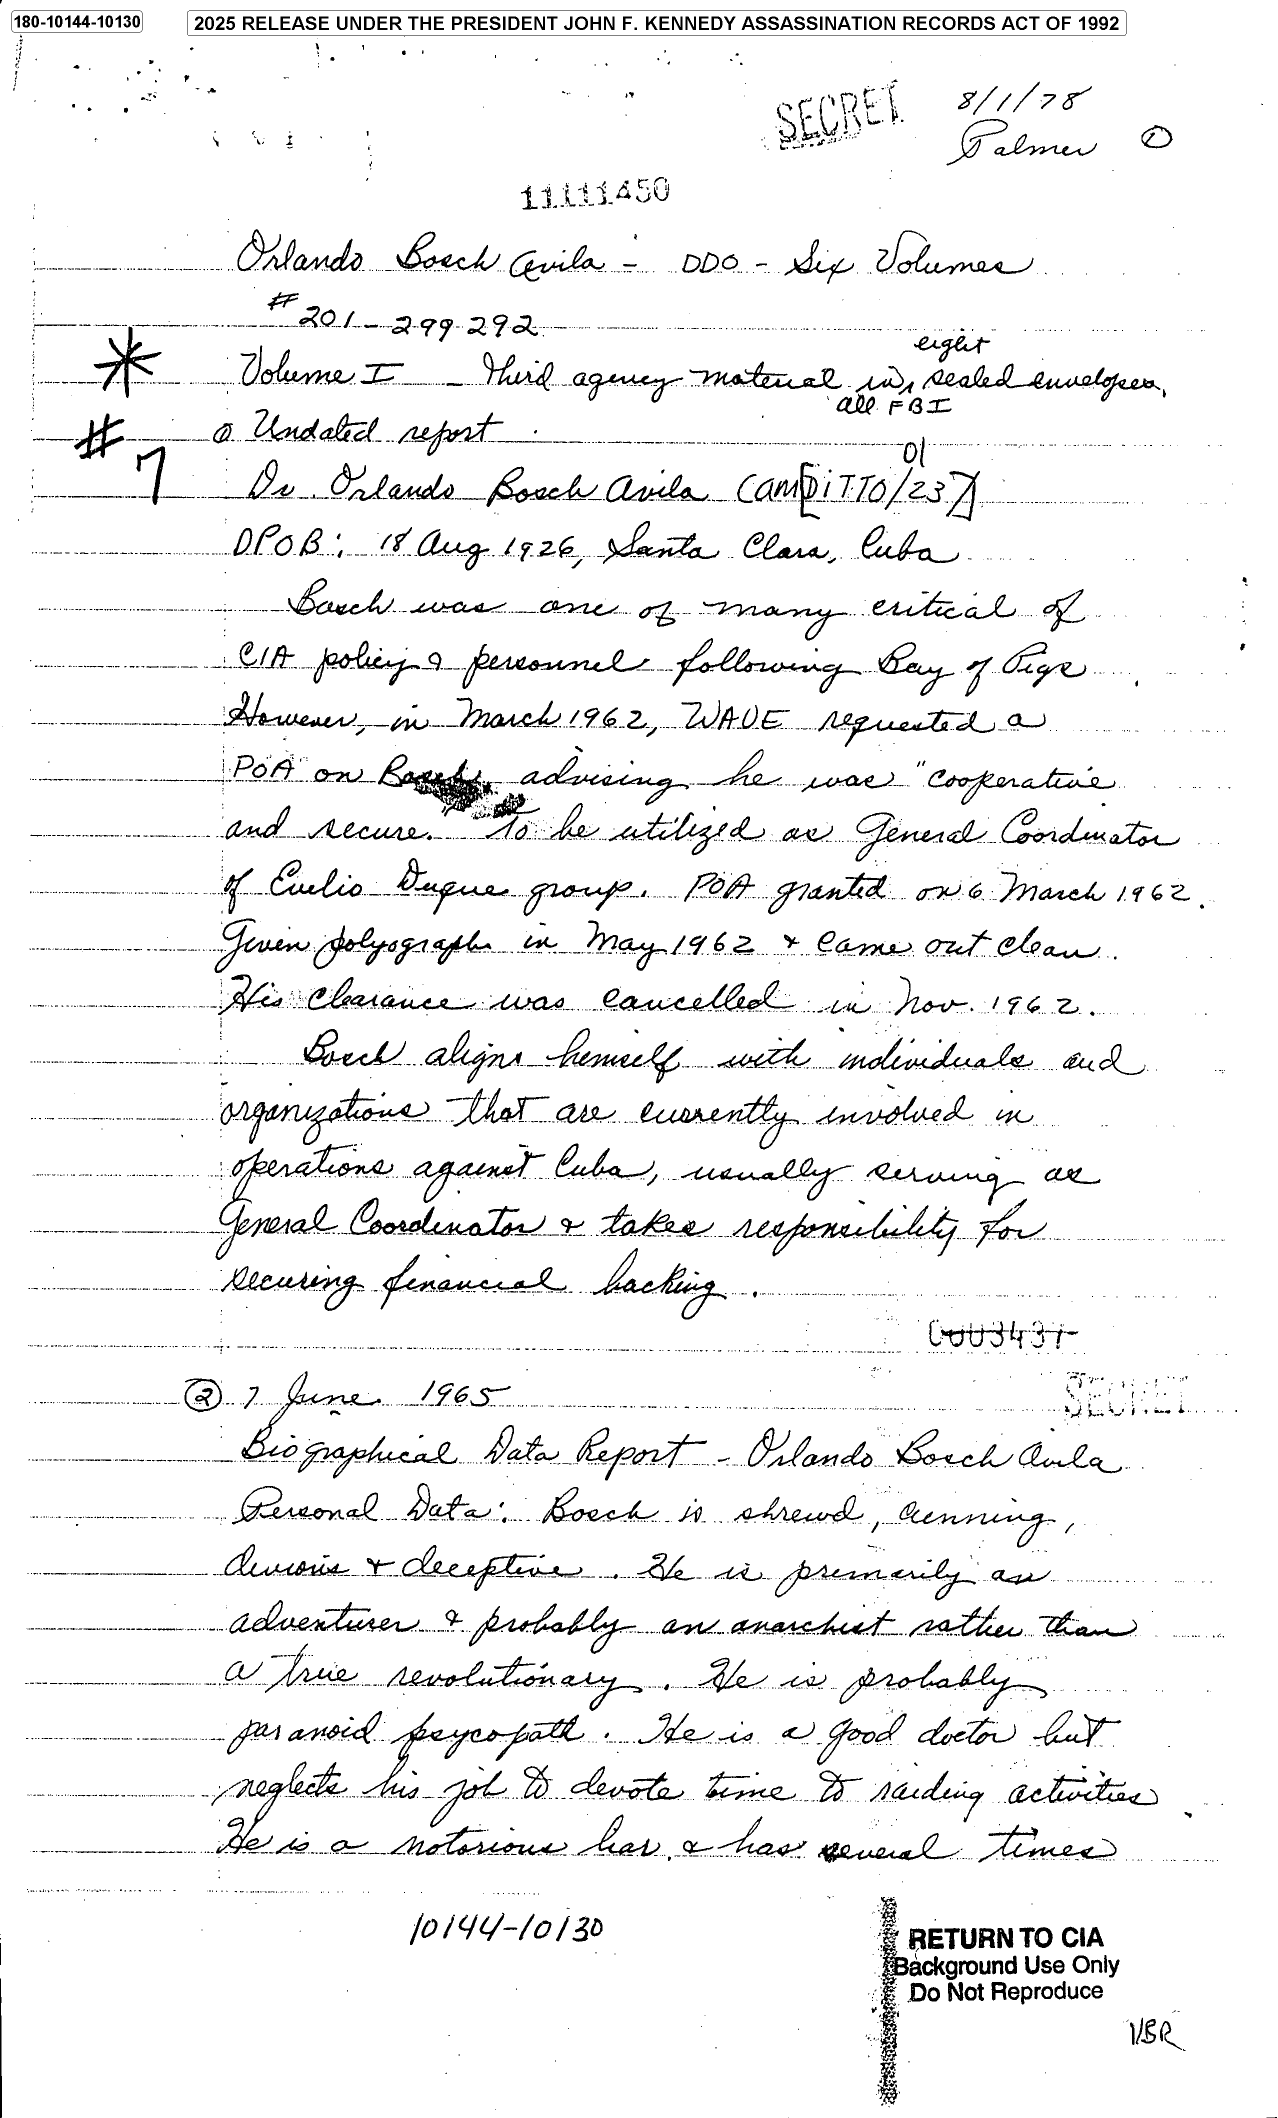 180-10144-10130
2025 RELEASE UNDER THE PRESIDENT JOHN F. KENNEDY ASSASSINATION RECORDS ACT OF 1992
SECRET
8/1/78
Palmer ①
11111450
Orlando Bosch Avila - DDO - Six Volumes
# 201-299292
* Volume I - third agency material in eight sealed envelopes,
all FBI
# 7
① Undated report
01
Dr. Orlando Bosch Avila (AM[DITTO/23])
DPOB: 18 Aug 1926, Santa Clara, Cuba
Bosch was one of many critical of
CIA policy & personnel following Bay of Pigs
However, in March 1962, WAVE requested a
POA on Bosch, advising he was "cooperative
and secure." To be utilized as General Coordinator
of Evelio Duque group. POA granted on 6 March 1962.
Given polyograph in May 1962 & came out clean.
His clearance was cancelled in Nov. 1962.
Bosch aligns himself with individuals and
organizations that are currently involved in
operations against Cuba, usually serving as
General Coordinator & takes responsibility for
securing financial backing.
0003437
② 7 June 1965
SECRET
Biographical Data Report - Orlando Bosch Avila
Personal Data: Bosch is shrewd, cunning,
devious & deceptive. He is primarily an
adventurer & probably an anarchist rather than
a true revolutionary. He is probably
paranoid psycopath. He is a good doctor but
neglects his job to devote time to raiding activities
He is a notorious liar & has several times
10144-10130
RETURN TO CIA
Background Use Only
Do Not Reproduce
VBR